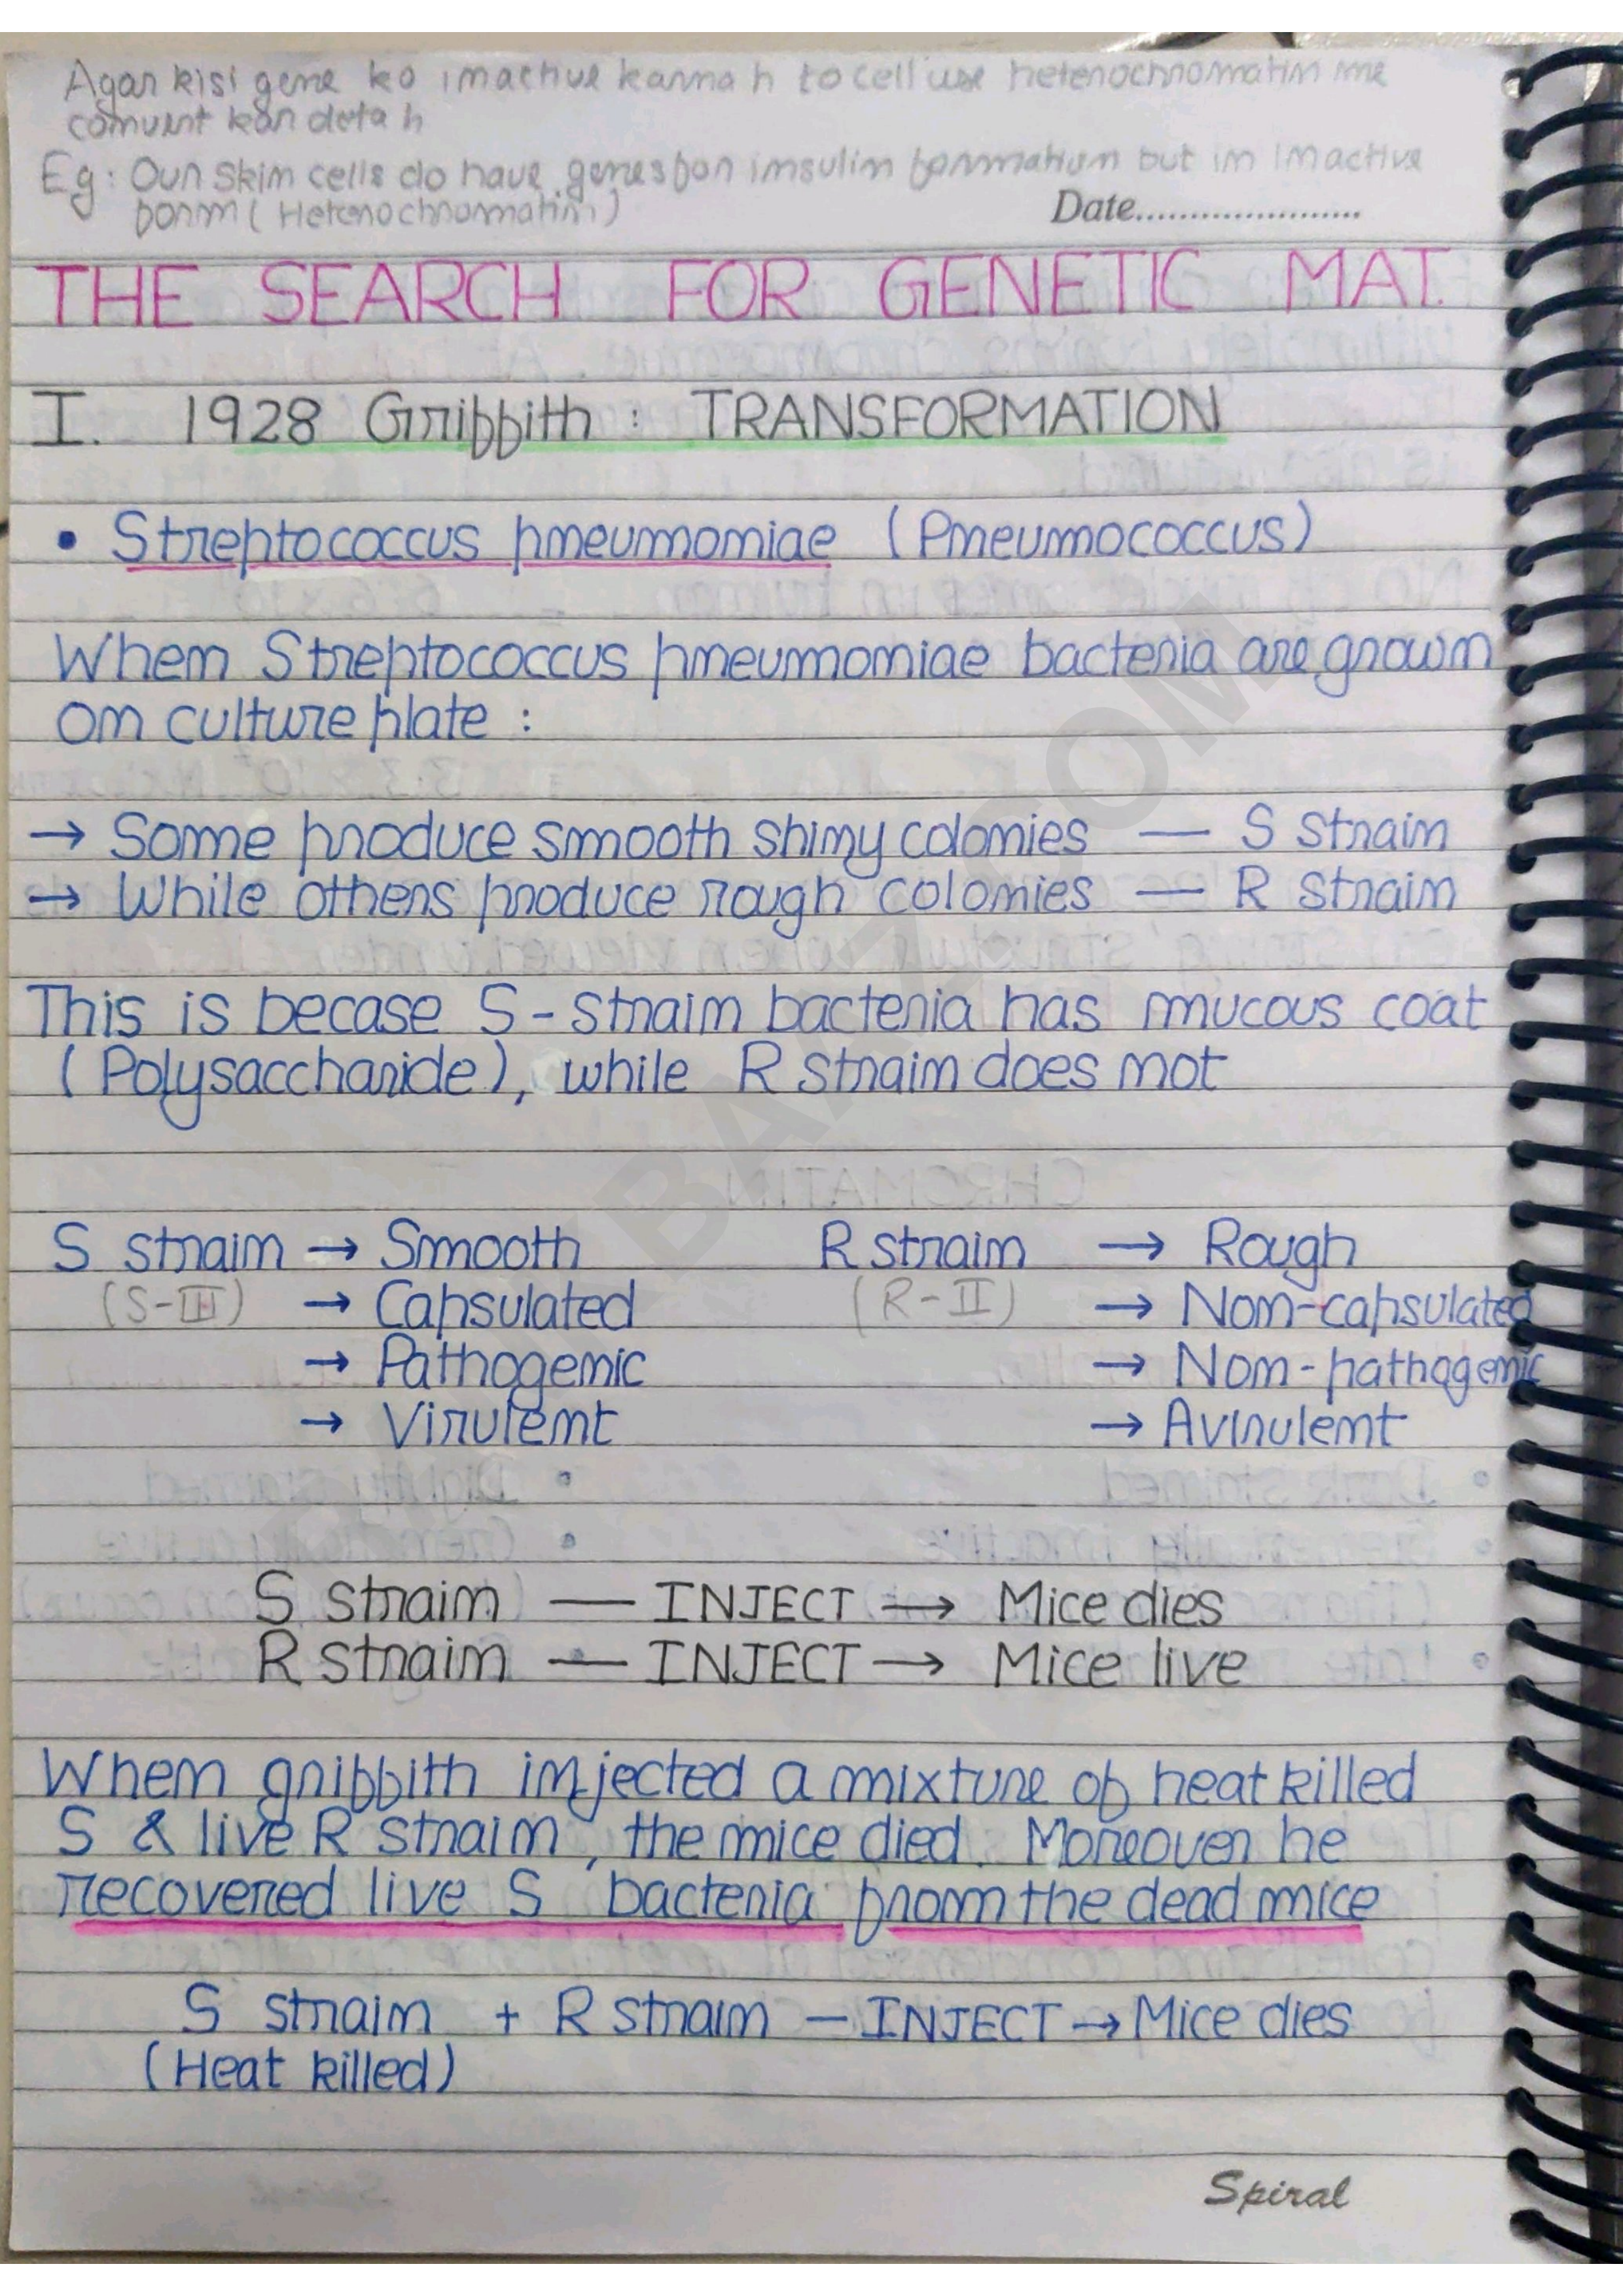 Agar kisi gene ko inactive karna h to cell use heterochromatin me
convert kar deta h
Eg: Our skin cells do have genes for insulin formation but in Inactive
form (Heterochromatin)
Date......................
THE SEARCH FOR GENETIC MAT.
I. 1928 Griffith : TRANSFORMATION
• Streptococcus pneumoniae (Pneumococcus)
When Streptococcus pneumoniae bacteria are grown
on culture plate :
→ Some produce smooth shiny colonies — S strain
→ While others produce rough colonies — R strain
This is becase S - strain bacteria has mucous coat
(Polysaccharide), while R strain does not
S strain → Smooth R strain → Rough
(S-III) → Capsulated (R-II) → Non-capsulated
→ Pathogenic → Non-pathogenic
→ Virulent → Avirulent
S strain — INJECT → Mice dies
R strain — INJECT → Mice live
When griffith injected a mixture of heat killed
S & live R strain, the mice died. Moreover he
recovered live S bacteria from the dead mice
S strain + R strain — INJECT → Mice dies
(Heat killed)
Spiral